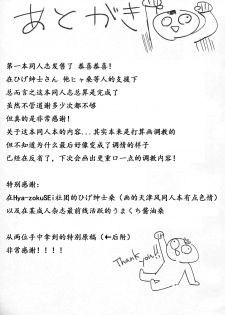 あとがき
第一本同人志发售了 恭喜恭喜！
在ひげ绅士さん 他ヒャ桑等人的支援下
总而言之这本同人总算是完成了
虽然不管道谢多少次都不够
但真的是非常感谢！
关于这本同人本的内容...其实本来是打算画调教的
但不知为什么最后好像变成了调情的样子
已经在反省了，下次会画出更重口一点的调教内容！
特别感谢：
在Hya-zokuSEi社团的ひげ绅士桑（画的天津风同人本有点色情）
以及在某成人杂志最前线活跃的うまくち醤油桑
从两位手中拿到的特别原稿（←后附）
非常感谢！！！！
Thank you!!